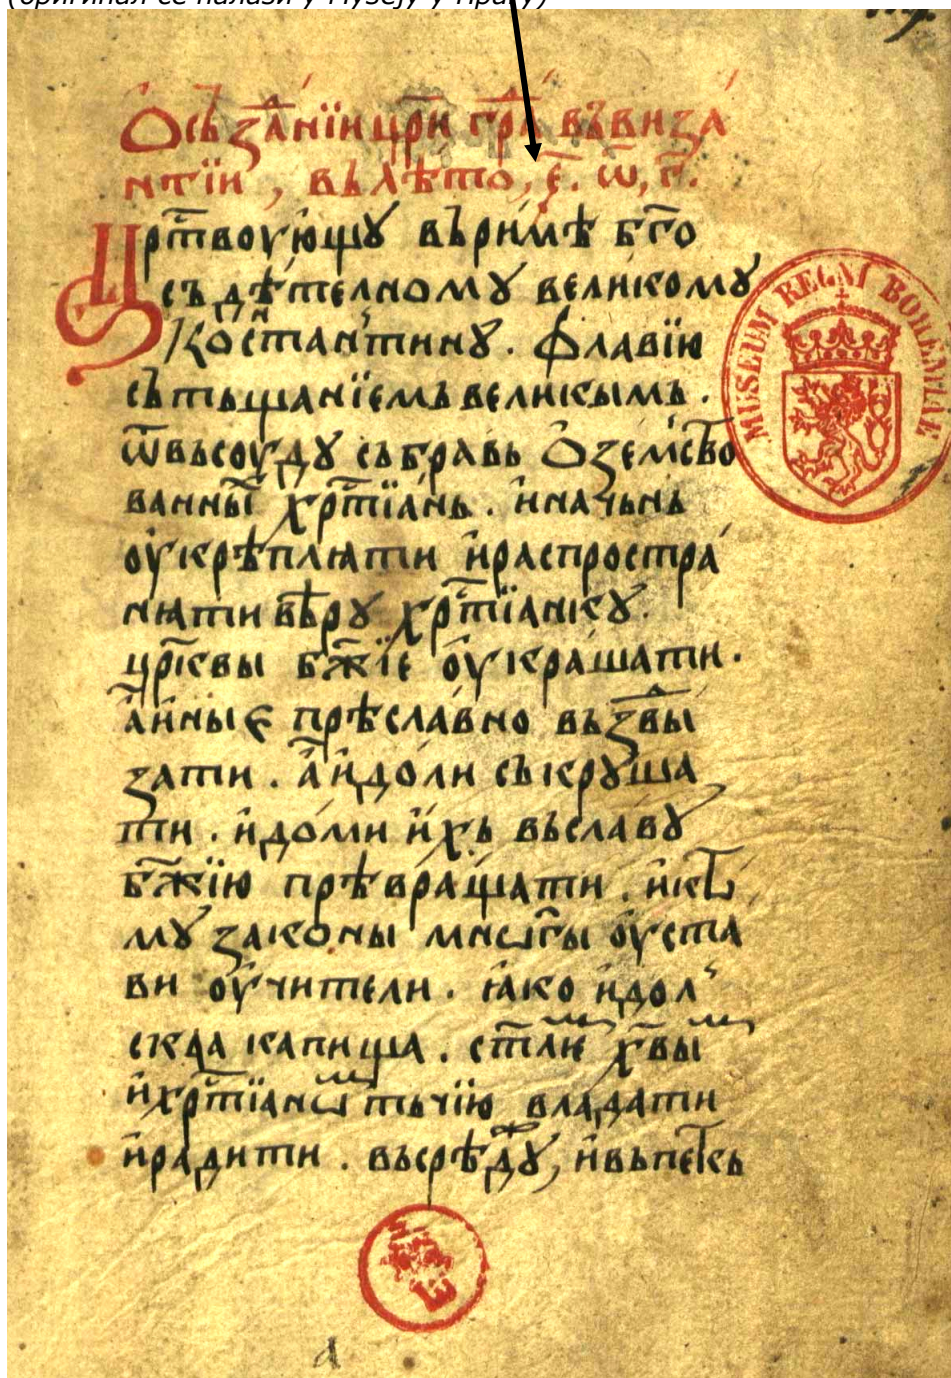 (оригинал се налази у Музеју у Прагу)
Ѻ съꙁда́нїи цр҃ігра въ виꙁа
нтїи, въ лѣто, є҃. ѿ, г҃.
Црⷭ҇твоу́ющꙋ въ ри́мѣ бг҃о
съдѣ́телномꙋ великомꙋ
Костаⷩ҇тинꙋ. Флавїю
съ тьщанїемь великымъ.
ѿвъсоу́дꙋ събравь Ѻꙁемⷭ҇тво
ванныⷯ хрⷭ҇тїань. и начьнь
оу҆крѣплꙗти и распростра́
нꙗти вѣрꙋ хрⷭ҇тїанскꙋ.
цр҃квы бж҃їе оу҆кра́шати.
а҆ и́ные прѣславно въꙁⷣви
ꙁати. а҆ и҆доли съкрꙋ́ша
ти. и҆ до́ми и҆́хь въ славꙋ
бж҃їю прѣвра́щати. и҆ къ
мꙋ ꙁаконы мнѡ́гы оу҆ста
ви оу҆чители. ꙗ҆ко и҆дол
скаа капища. ст҃лиⷨ хв҃ыⷨ
и҆ хрⷭ҇тїанѡⷨ тъчїю владати
и҆ радити. въ срѣⷣꙋ, и҆ въ петькь
MUSEUM REGNI BOHEMIAE